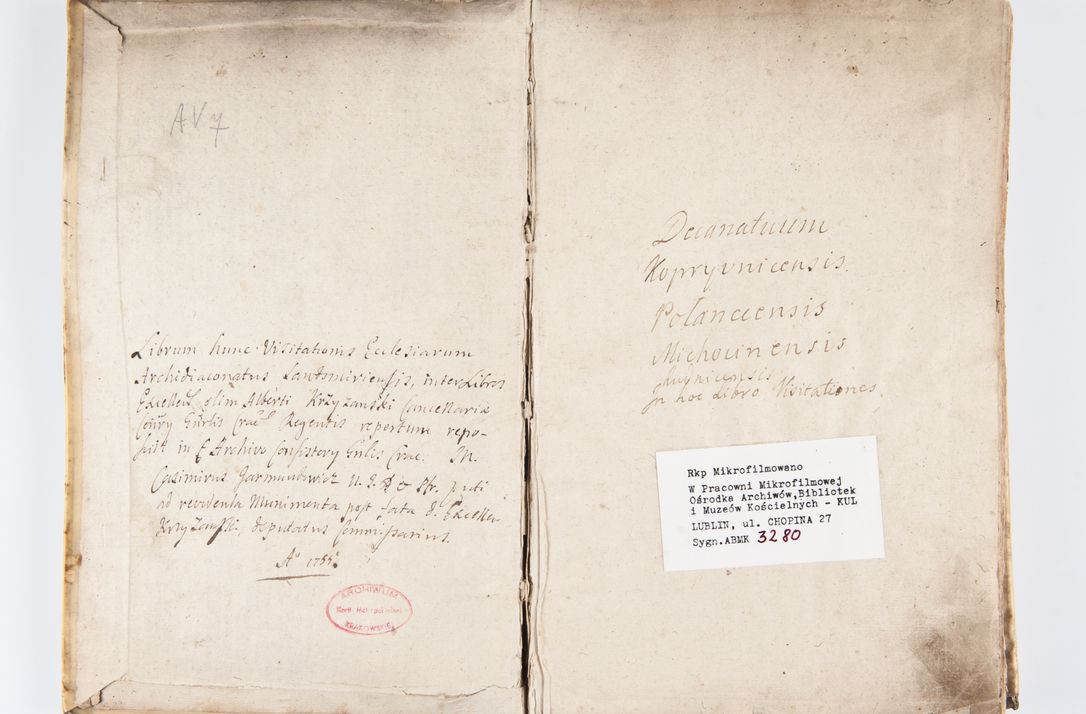 AV7
Librum hunc Visitationis Ecclesiarum
Archidiaconatus Sandomiriensis, inter Libros
Excellmi olim Alberti Krzyżanski Cancellariæ
Regentis repertum repo-
suit in Archivo Consistory Gnlis Crac. M.
Casimirus Jarmundowicz
ad revidenda Munimenta post fata Excellen
Krzyżanski, deputatus Commissarius.
Aº 1755.
ARCHIWUM
Kurii Metropolitalnej
KRAKOWSKIEJ
Decanatuum
Koprzyvnicensis.
Połanecensis
Michocinensis
in hoc Libro Visitationes.
Rkp Mikrofilmowano
W Pracowni Mikrofilmowej
Ośrodka Archiwów,Bibliotek
i Muzeów Kościelnych - KUL
LUBLIN, ul. CHOPINA 27
Sygn.ABMK 3280